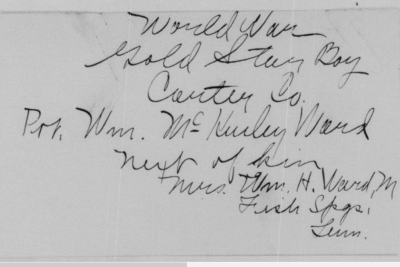 World War
Gold Star Boy
Carter Co.
Pvt. Wm. McKinley Ward
next of kin
Mrs. Wm. H. Ward, M
Fish Spgs.
Tenn.